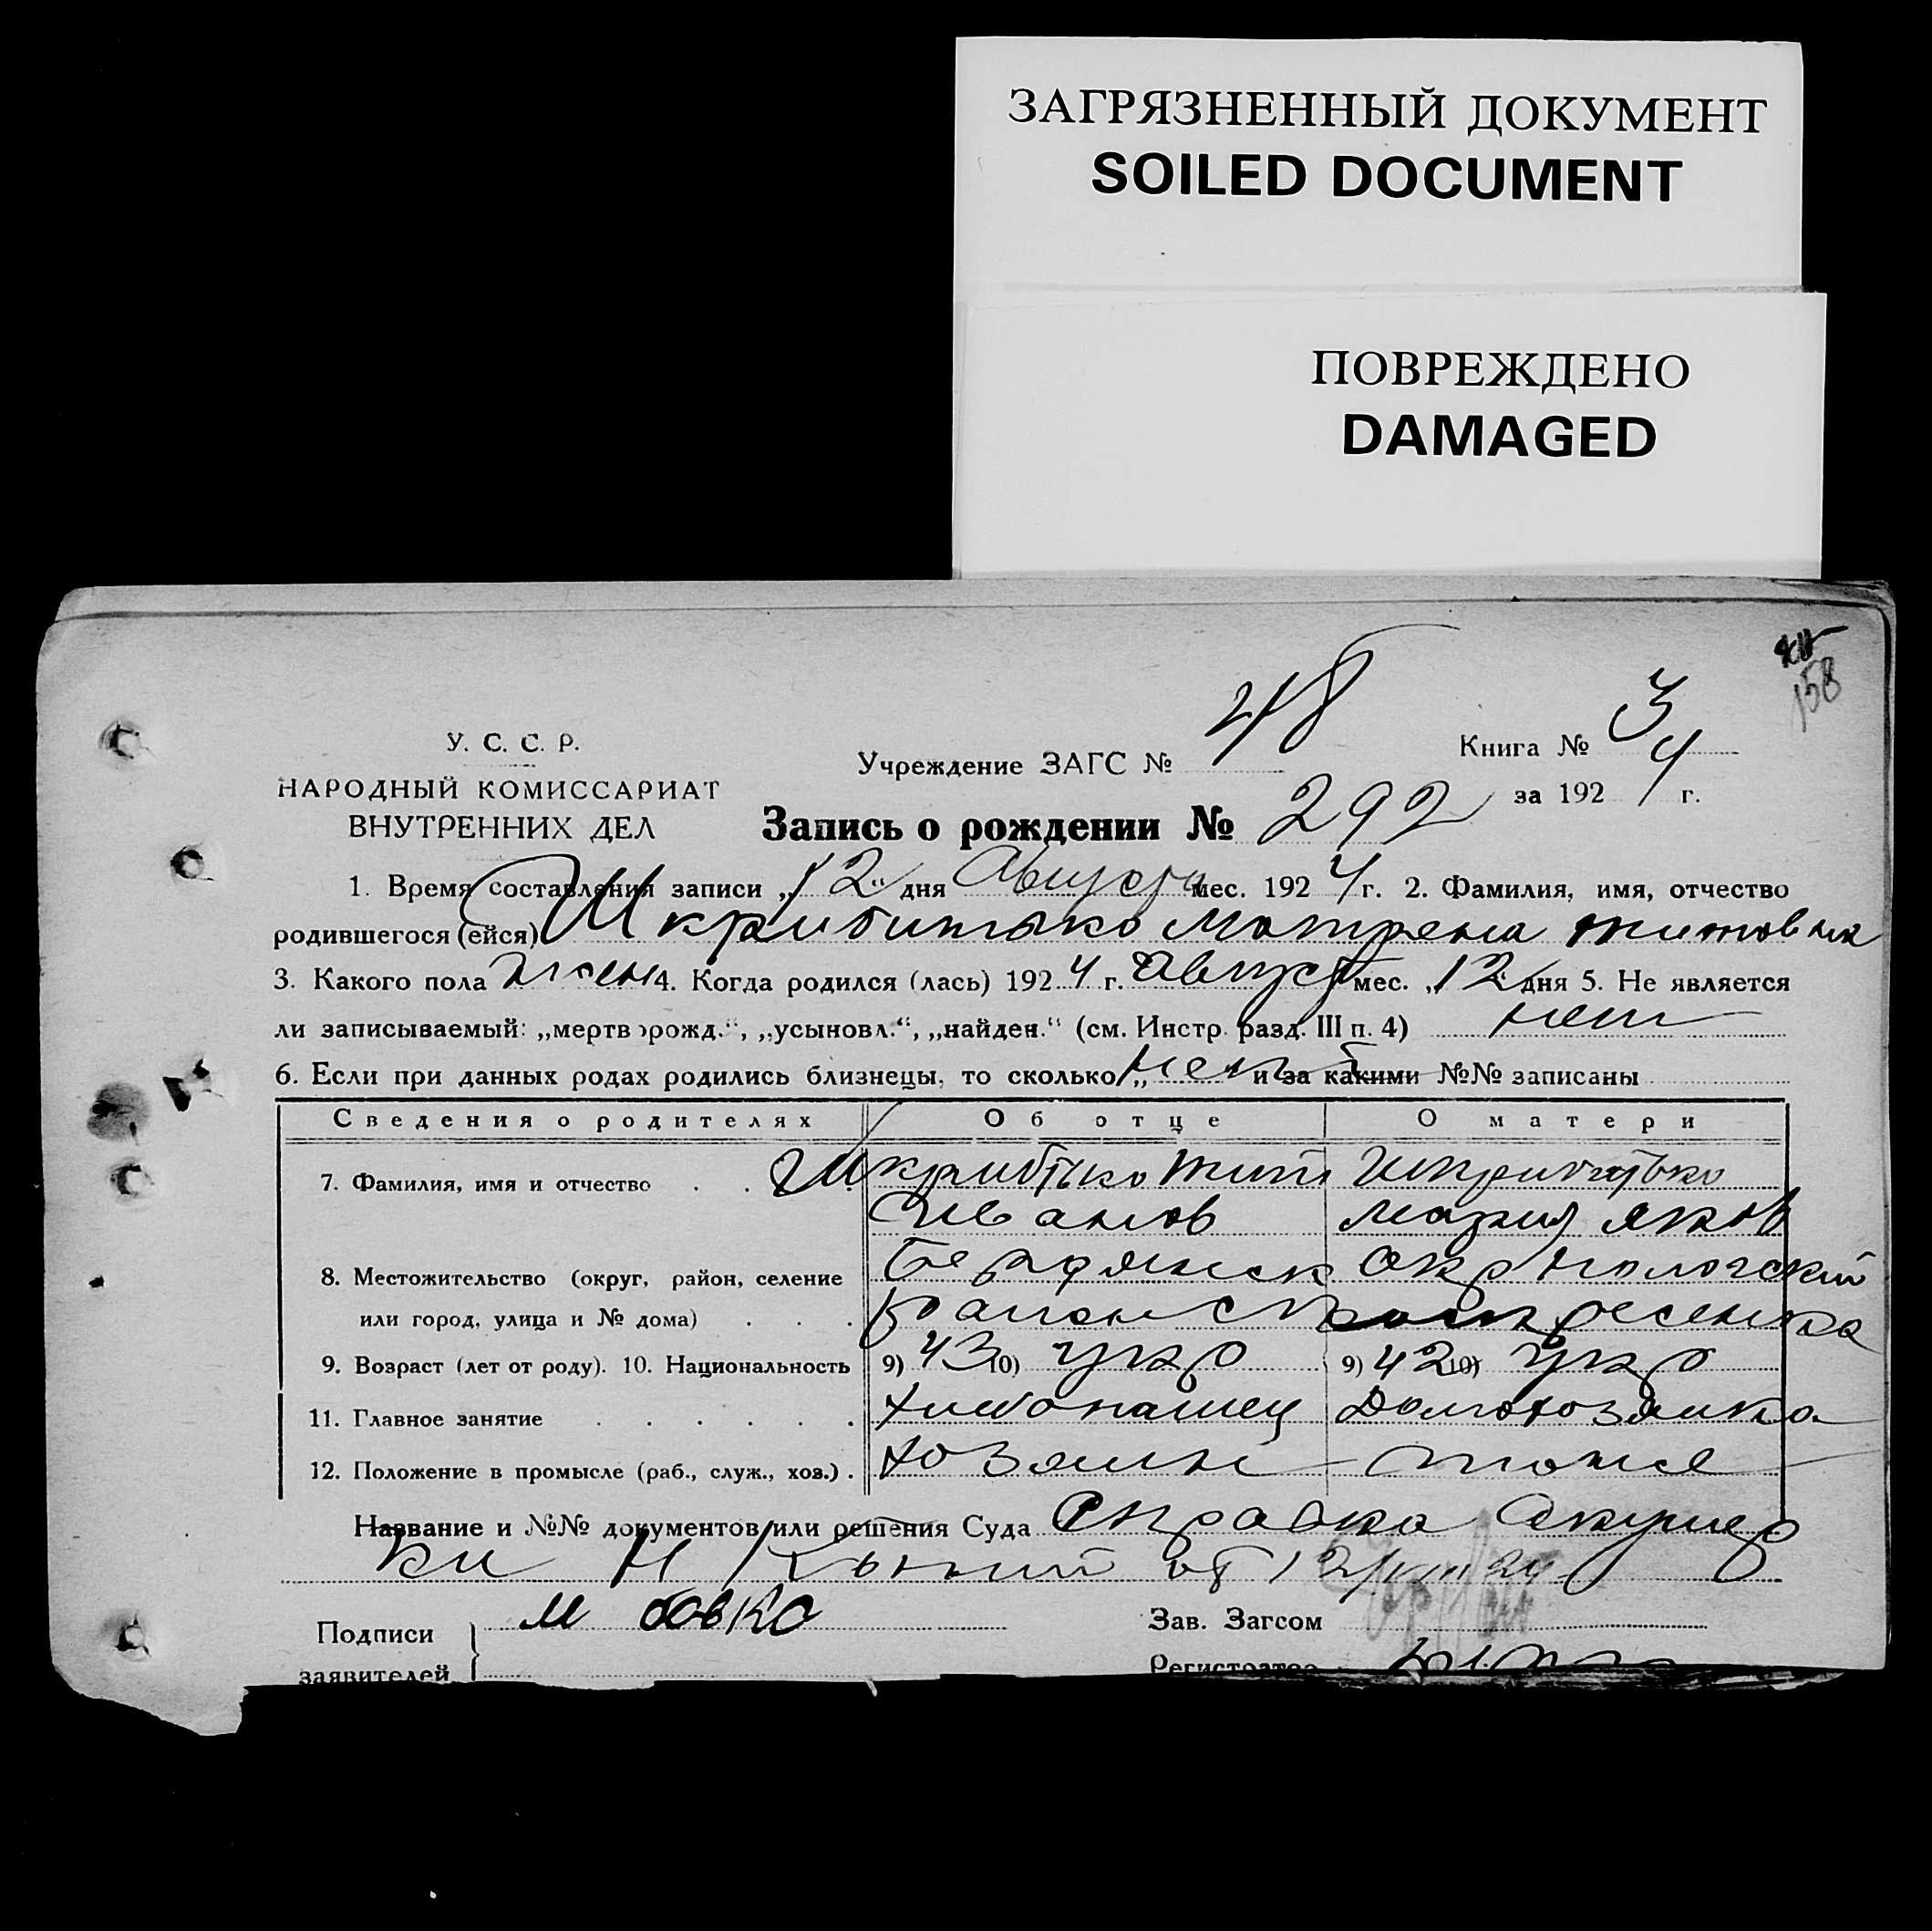 ЗАГРЯЗНЕННЫЙ ДОКУМЕНТ
SOILED DOCUMENT
ПОВРЕЖДЕНО
DAMAGED
158
У. С. С. Р.
НАРОДНЫЙ КОМИССАРИАТ
ВНУТРЕННИХ ДЕЛ
Учреждение ЗАГС № 48
Книга № 3
за 1924 г.
Запись о рождении № 292
1. Время составления записи „12“ дня Августа мес. 1924 г. 2. Фамилия, имя, отчество
родившегося (ейся) Матрена Титовна
3. Какого пола жен 4. Когда родился (лась) 1924 г. Август мес. „12“ дня 5. Не является
ли записываемый: „мертворожд.“, „усыновл.“, „найден.“ (см. Инстр. разд. III п. 4) нет
6. Если при данных родах родились близнецы, то сколько „нет“ и за какими №№ записаны
Сведения о родителях Об отце О матери
7. Фамилия, имя и отчество Тит
Иванов Мария Яков
8. Местожительство (округ, район, селение Бердянск окр Ногайский
или город, улица и № дома) район
9. Возраст (лет от роду). 10. Национальность 9) 43 10) укр 9) 42 10) укр
11. Главное занятие хлебопашец Домохозяйка
12. Положение в промысле (раб., служ., хоз.) хозяин тоже
Название и №№ документов или решения Суда Справка Акушер
ки от 12/VIII 24
Подписи
заявителей
Зав. Загсом
Регистратор